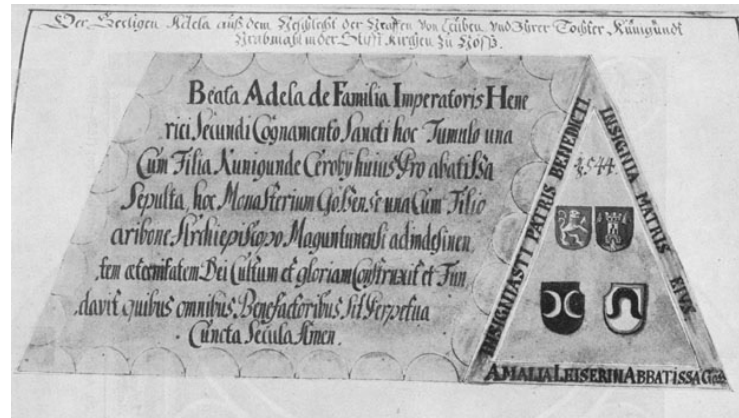 Der Seeligen Adela auß dem Geschlecht der Graffen von Leüben, und Ihrer Tochter Künigundt
Grabmahl in der Stifft Kirchen zu Göß.
Beata Adela de Familia Imperatoris Hene
rici Secundi Cognamento Sancti hoc Tumulo una
Cum Filia Kunigunde Ceroby huius Pro abatissa
Sepulta, hoc Monasterium Gössense una Cum Filio
aribone Archiepiscopo Maguntunensi ad indesinen,
tem aeternitatem Dei Cultum et gloriam Construxit et Fun
davit quibus omnibus Benefactoribus Sit Perpetua
Cuncta Secula Amen.
PATRIS BENEDICTI
INSIGNIA MATRIS EIUS
1544.
AMALIA LEISERIN ABBATISSA